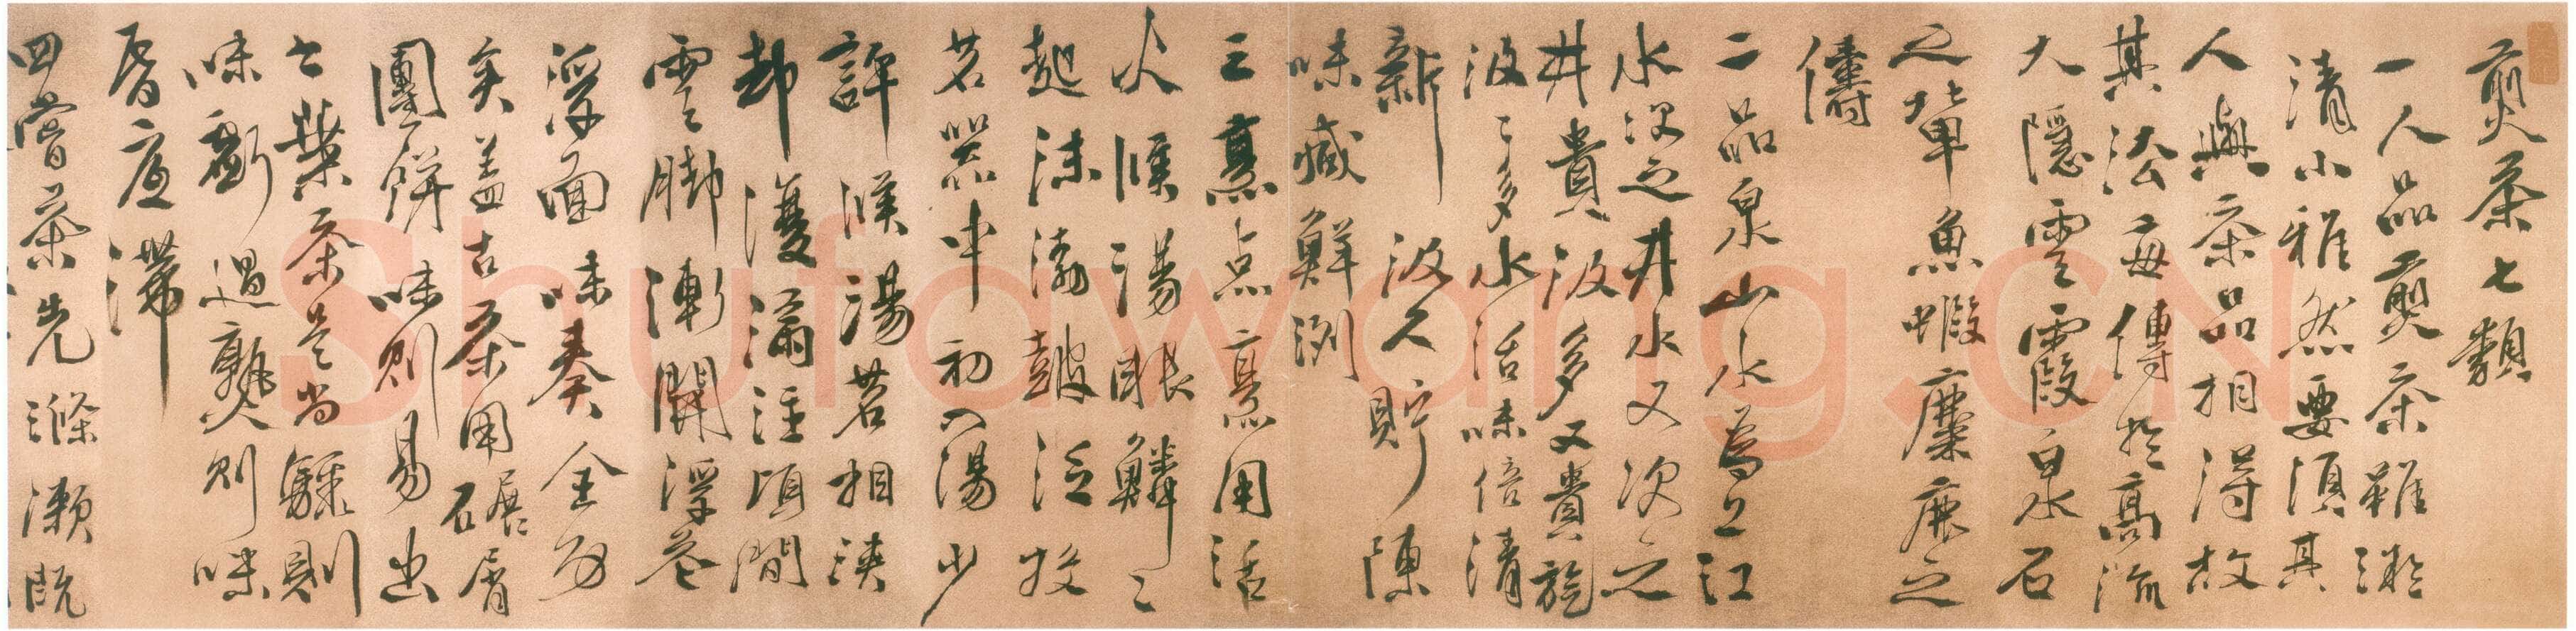 煎茶七類
一人品煎茶雖凝
清小雅然要須其
人與茶品相得故
其法每傳於高流
大隱雲霞泉石
之輩魚蝦麋鹿之
儔
二品泉山水為上江
水次之井水又次之
井貴汲多又貴旋
汲〻多水活味倍清
新汲久貯陳
味減鮮冽
三烹点烹用活
火候湯眼鱗〻
起沫渤鼓泛投
茗器中初入湯少
許候湯茗相浹
却復滿注頃間
雲脚漸開浮花
浮面味奏全功
矣盖古茶用碾屑
團餅味則易出
葉茶是尚驟則
味虧過熟則味
昏底滯
四嘗茶先滌漱既
Shufawang.CN